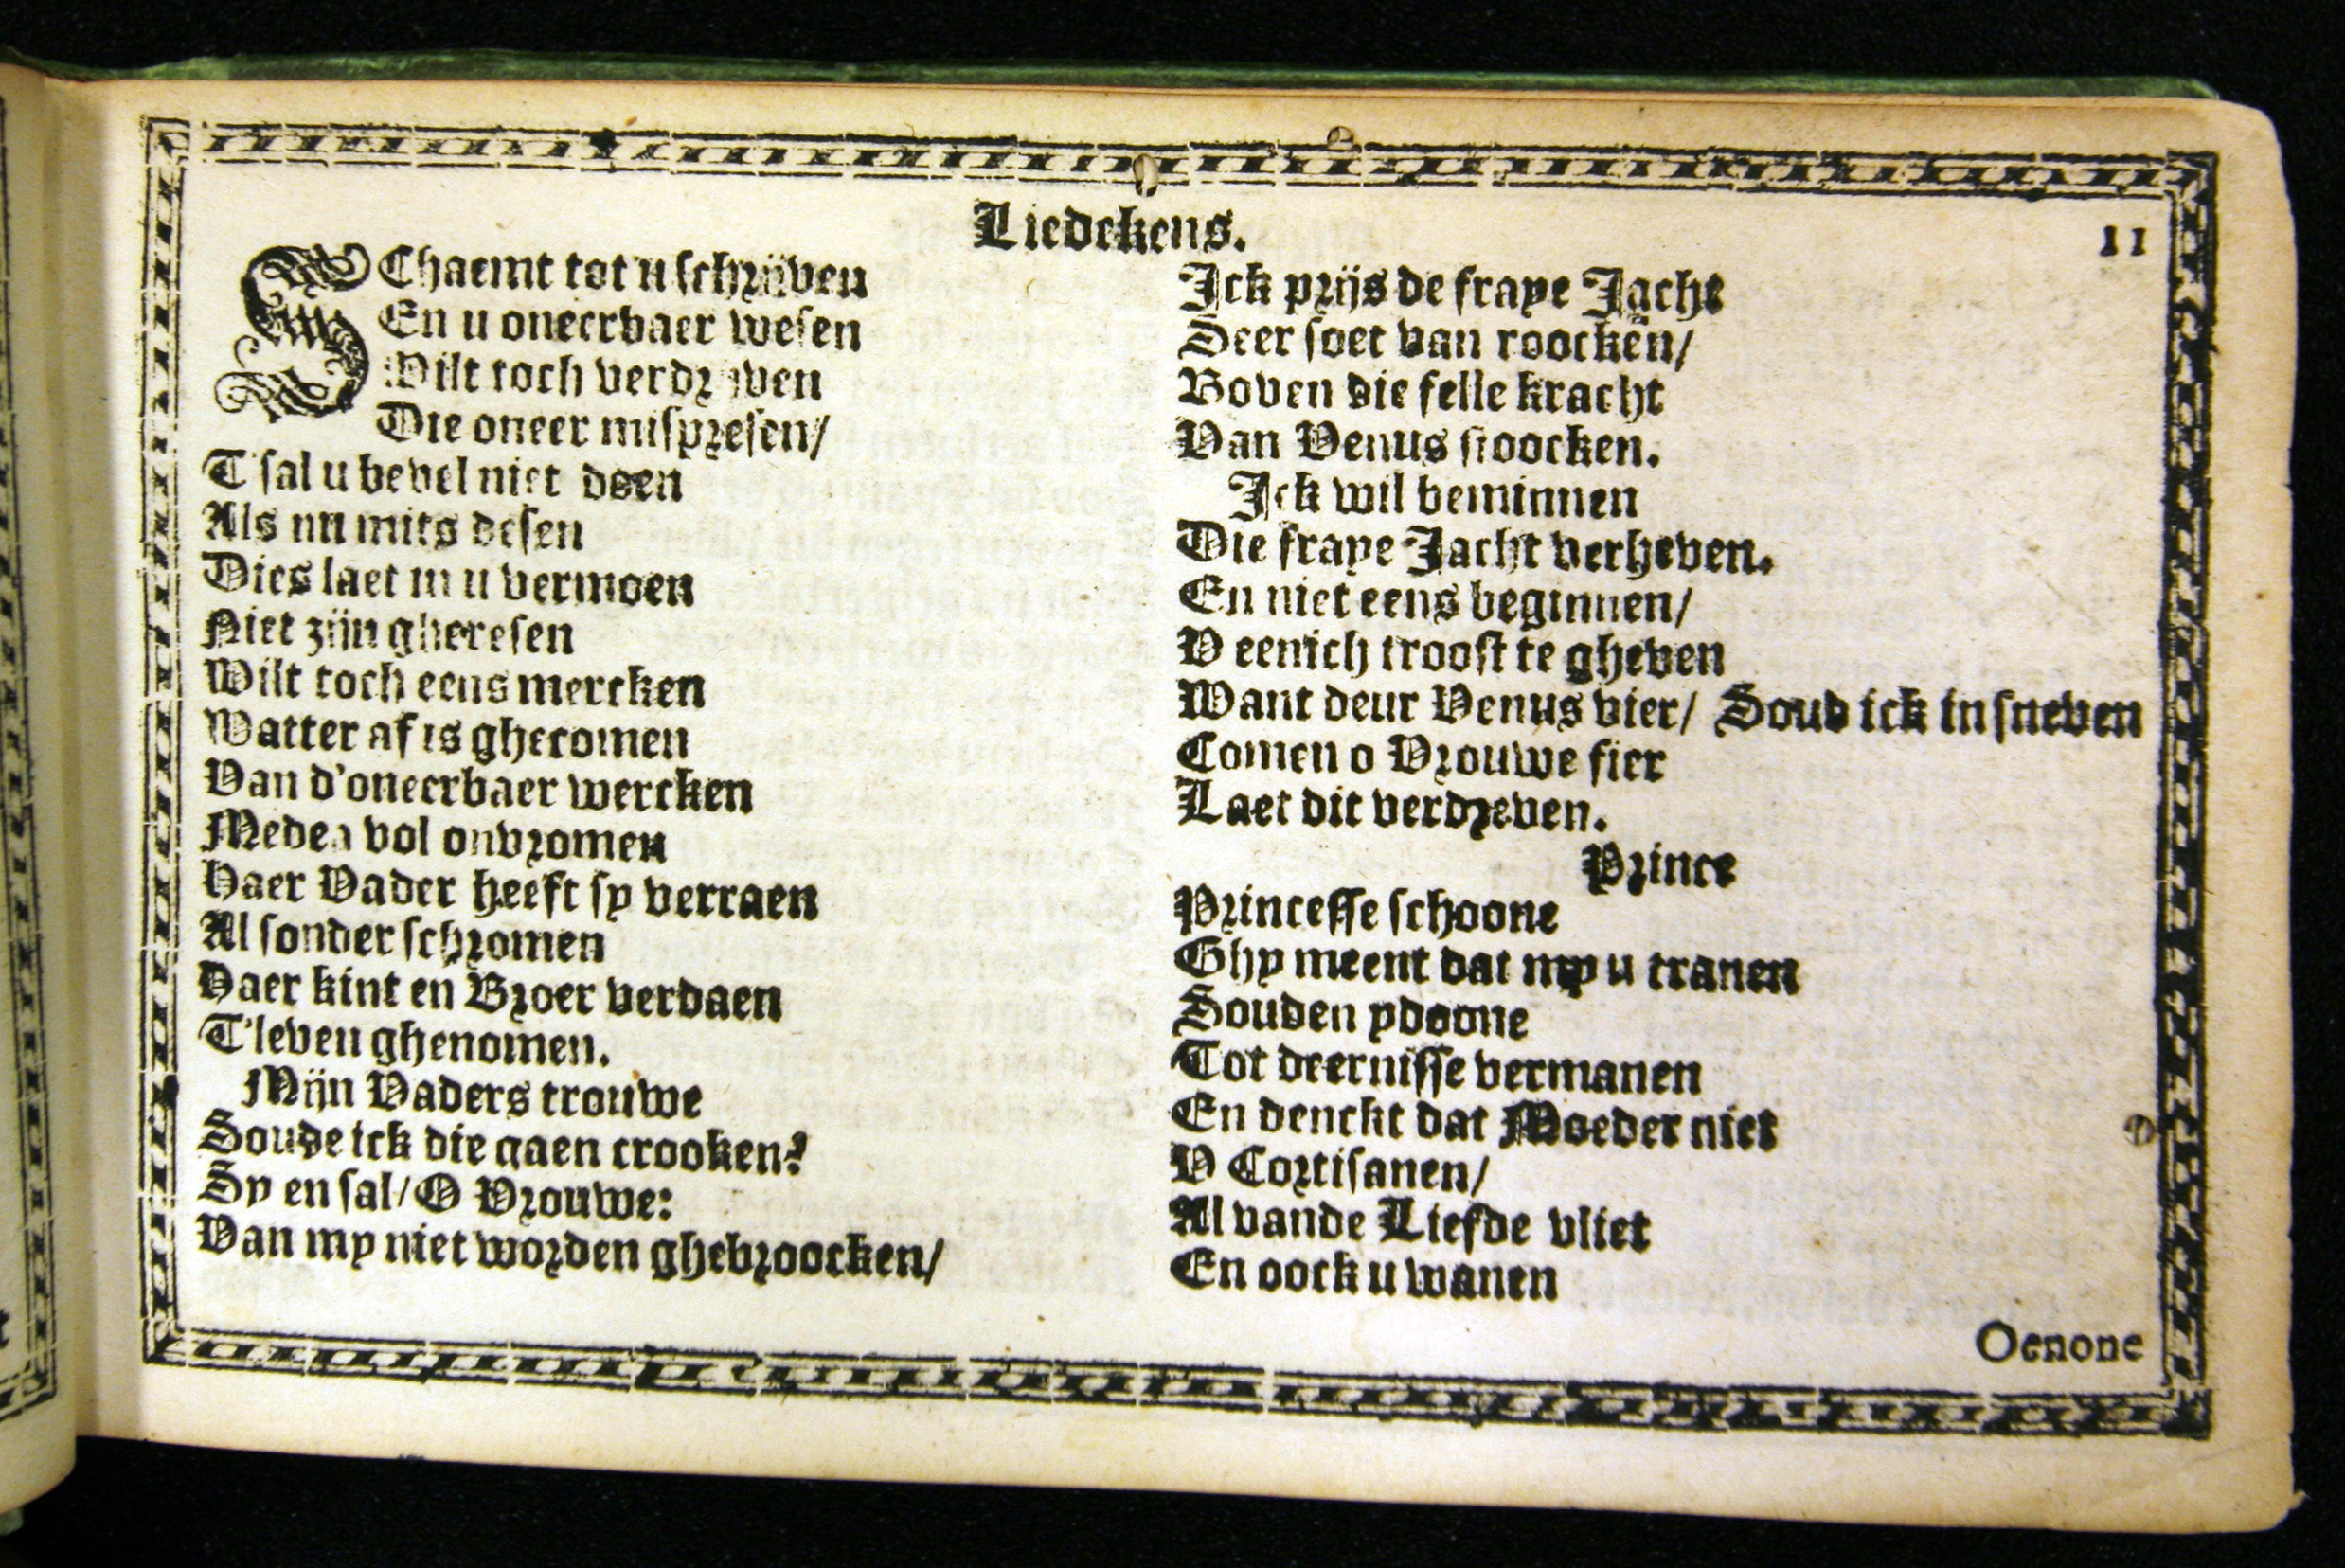 Liedekens.
11
SChaemt tot u schrijven
En u oneerbaer wesen
Wilt toch verdrijven
Die oneer mispresen/
T'sal u bevel niet doen
Als nu mits desen
Dies laet in u vermoen
Niet zijn gheresen
Wilt toch eens mercken
Watter af is ghecomen
Van d'oneerbaer wercken
Medea vol onvromen
Haer Vader heeft sy verraen
Al sonder schromen
Haer kint en Broer verdaen
T'leven ghenomen.
Mijn Vaders trouwe
Soude ick die gaen crooken?
Sy en sal/ O Vrouwe:
Van my niet worden ghebroocken/
Ick prijs de fraye Jacht
Seer soet van roockē/
Boven die felle kracht
Van Venus stoocken.
Ick wil beminnen
Die fraye Jacht verheven.
En niet eens beginnen/
V eenich troost te gheven
Want deur Venus vier/ Soud ick in sneven
Comen o Vrouwe fier
Laet dit verdreven.
Prince
Princesse schoone
Ghy meent dat my u tranen
Souden ydoone
Tot deernisse vermanen
En denckt dat Moeder niet
V Cortisanen/
Al vande Liefde vliet
En oock u wanen
Oenone